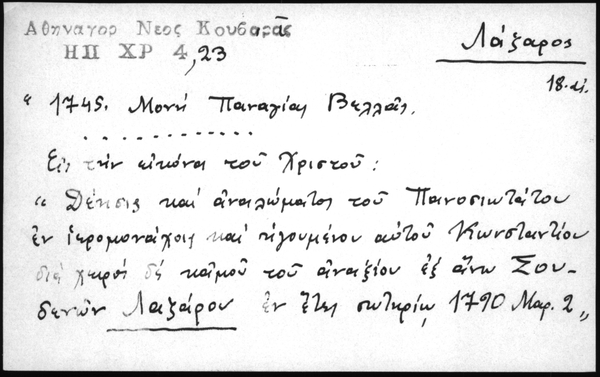 Ἀθηναγορ Νεος Κουβαρᾶς
ΗΠ ΧΡ 4,23
Λάζαρος
18. αἰ.
" 1745. Μονὴ Παναγίας Βελλᾶς.
. . . . . . . . . . . .
Εἰς τὴν εἰκόνα τοῦ Χριστοῦ :
" Δέησις καὶ ἀναλώματος τοῦ Πανοσιωτάτου
ἐν ἱερομονάχοις καὶ ἡγουμένου αὐτοῦ Κωνσταντίου
διὰ χειρὸς δὲ κἀμοῦ τοῦ ἀναξίου ἐξ ἄνω Σου-
δενῶν Λαζάρου ἐν ἔτει σωτηρίῳ 1790 Μαρ. 2 "